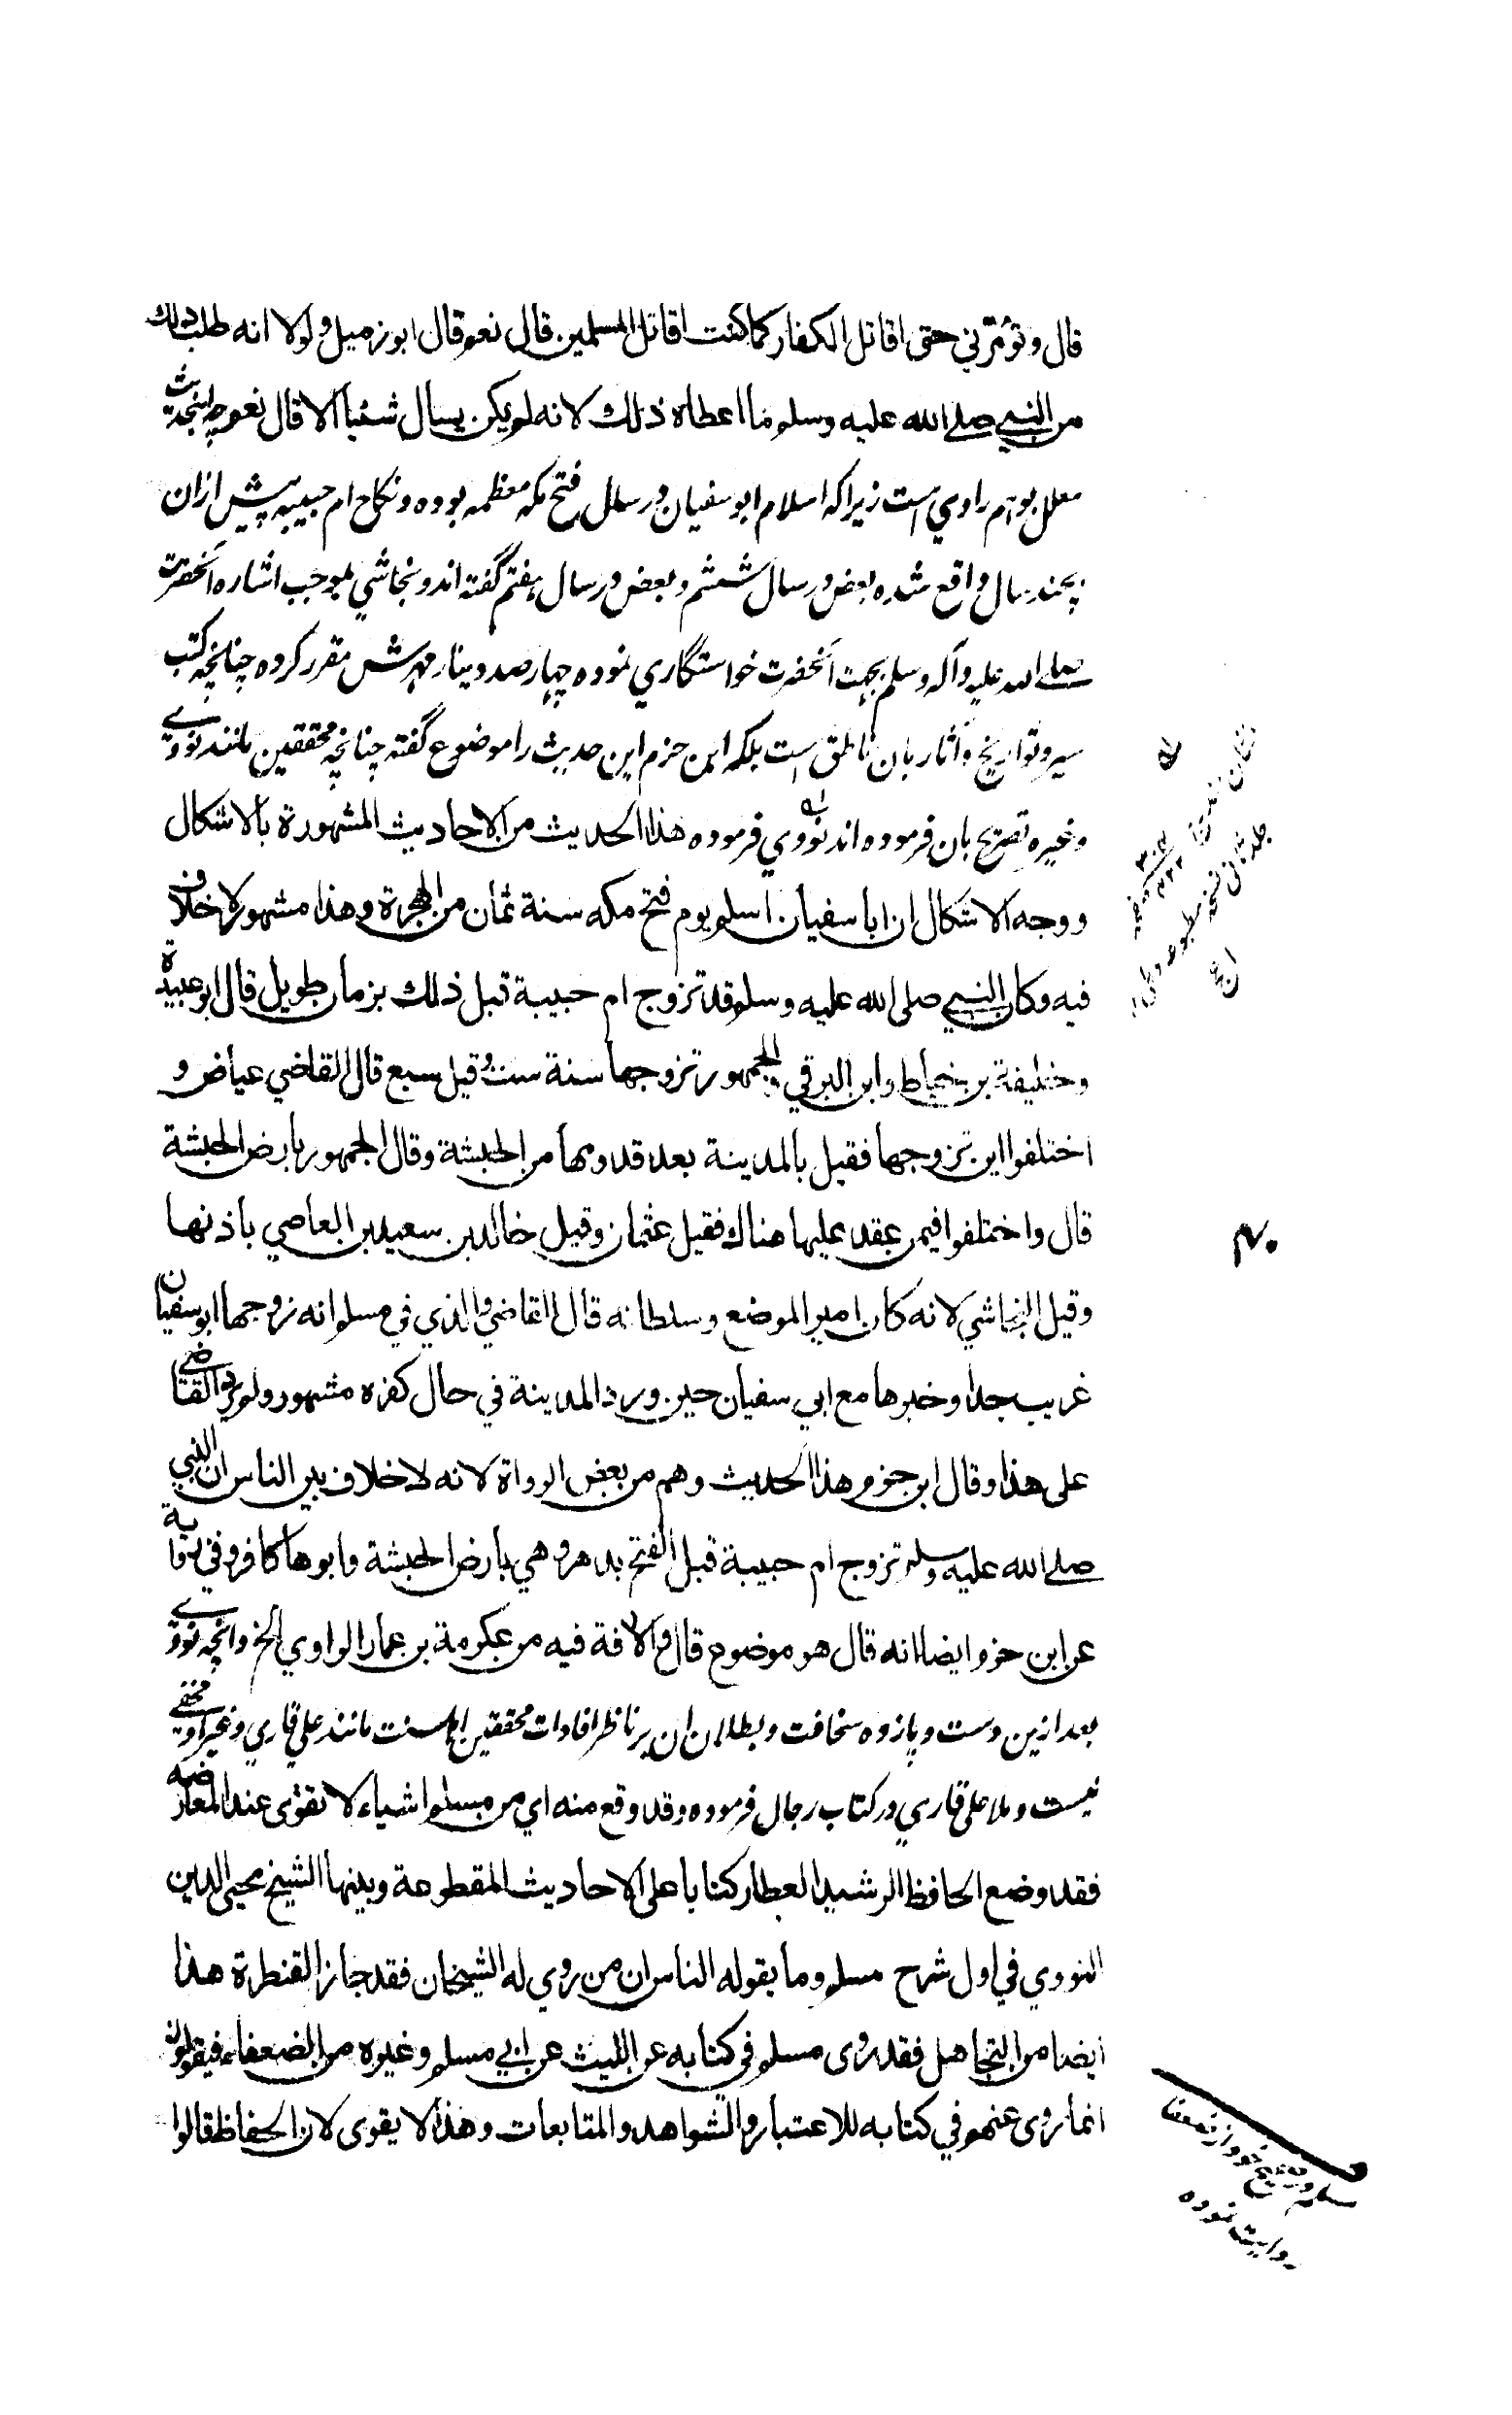 قال وتؤمّرني حتى اقاتل الكفار كما كنت اقاتل المسلمين قال نعم قال ابوزميل ولولا انه طلب ذلك
من النبي صلى الله عليه وسلم ما اعطاه ذلك لانه لم يكن يسال شئيا الا قال نعم چه اينحديث
معلل بوهم راوي است زيرا كه اسلام ابو سفيان در سال فتح مكه معظمه بوده ونكاح ام حبيبه پيش ازان
بچند سال واقع شده بعض در سال ششم وبعض در سال هفتم گفته اند ونجاشي بموجب اشاره آنحضرت
صلے الله عليه وآله وسلم بجهت آنحضرت خواستگاري نموده چهار صد دينار مهرش مقرر كرده چنانچه كتب
سير وتواريخ وآثار بان ناطق است بلكه ابن حزم اين حديث را موضوع گفته چنانچه محققين مانند نووے
وغيره تصريح بان فرموده اند نووي فرموده هذا الحديث من الاحاديث المشهورة بالاشكال
ووجه الاشكال ان ابا سفيان اسلم يوم فتح مكه سنة ثمان من الهجرة وهذا مشهور لا خلاف
فيه وكان النبي صلى الله عليه وسلم قد تزوج ام حبيبة قبل ذلك بزمان طويل قال ابو عبيدة
وخليفة بن خياط وابن البرقي والجمهور تزوجها سنة ست وقيل سبع قال القاضي عياض و
اختلفوا اين تزوجها فقيل بالمدينة بعد قدومها من الحبشة وقال الجمهور بارض الحبشة
قال واختلفوا فيمن عقد عليها هناك فقيل عثمان وقيل خالد بن سعيد بن العاصي باذنها
وقيل النجاشي لانه كان امير الموضع وسلطانه قال القاضي والذي في مسلم انه زوجها ابو سفيان
غريب جدا وخبرها مع ابي سفيان حين ورد المدينة في حال كفره مشهور ولم يزد القاضے
على هذا وقال ابن حزم هذا الحديث وهم من بعض الرواة لانه لا خلاف بين الناس ان النبي
صلى الله عليه وسلم تزوج ام حبيبة قبل الفتح بدهر وهي بارض الحبشة وابوها كافر وفي رواية
عن ابن حزم ايضا انه قال هو موضوع قال والآفة فيه من عكرمة بن عمار الراوي الخ وآنچه نووے
بعد ازين دست وپا زده سخافت وبطلان آن بر ناظر افادات محققين اهلسنت مانند علي قاري وغيراو مخفے
نيست وملا علي قاري در كتاب رجال فرموده وقد وقع منه اي من مسلم اشياء لا تقوى عند المعارضه
فقد وضع الحافظ الرشيد العطار كتابا على الاحاديث المقطوعة وبينها الشيخ محيي الدين
النووي في اول شرح مسلم وما يقوله الناس ان من روي له الشيخان فقد جاز القنطرة هذا
ايضا من التجاهل فقد روى مسلم في كتابه عن الليث عن ابي مسلم وغيره من الضعفاء فيقولون
انما روى عنهم في كتابه للاعتبار والشواهد والمتابعات وهذا لا يقوى لان الحفاظ قالوا